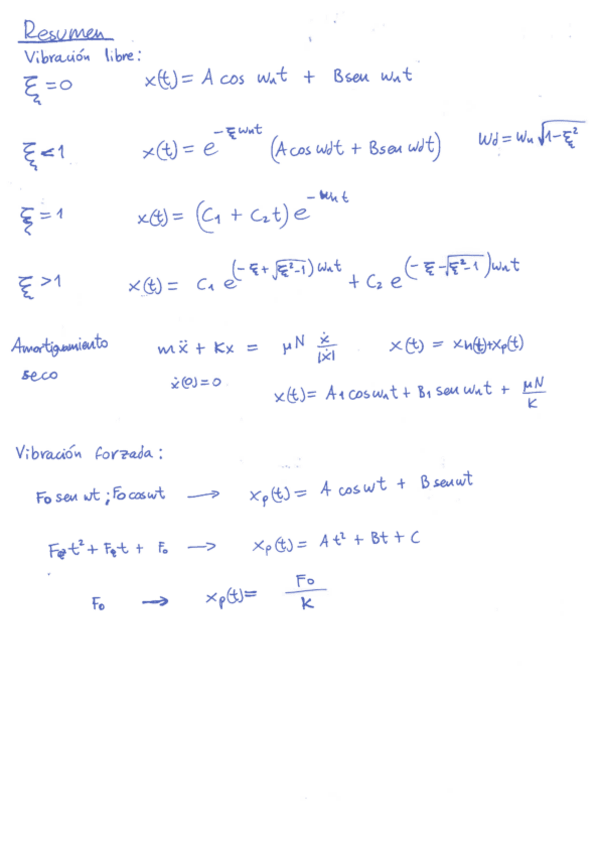 Resumen
Vibración libre:
ξ=0 x(t)= A cos wnt + B sen wnt
ξ<1 x(t)= e^(-ξwnt) (A cos wdt + B sen wdt) Wd = Wn √(1-ξ²)
ξ=1 x(t)= (C1 + C2t) e^(-wnt)
ξ>1 x(t)= C1 e^((-ξ+√(ξ²-1))wnt) + C2 e^((-ξ-√(ξ²-1))wnt)
Amortiguamiento seco mẍ + Kx = μN ẋ/|ẋ| x(t) = xh(t)+xp(t)
ẋ(0)=0 x(t)= A1 cos wnt + B1 sen wnt + μN/K
Vibración forzada:
Fo sen wt ; Fo cos wt → xp(t)= A cos wt + B sen wt
F2t² + F1t + Fo → xp(t)= At² + Bt + C
Fo → xp(t)= Fo/K